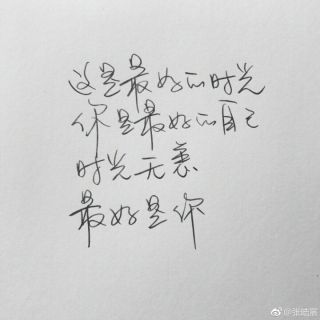 这是最好的时光
你是最好的自己
时光无衰
最好是你
@张皓宸